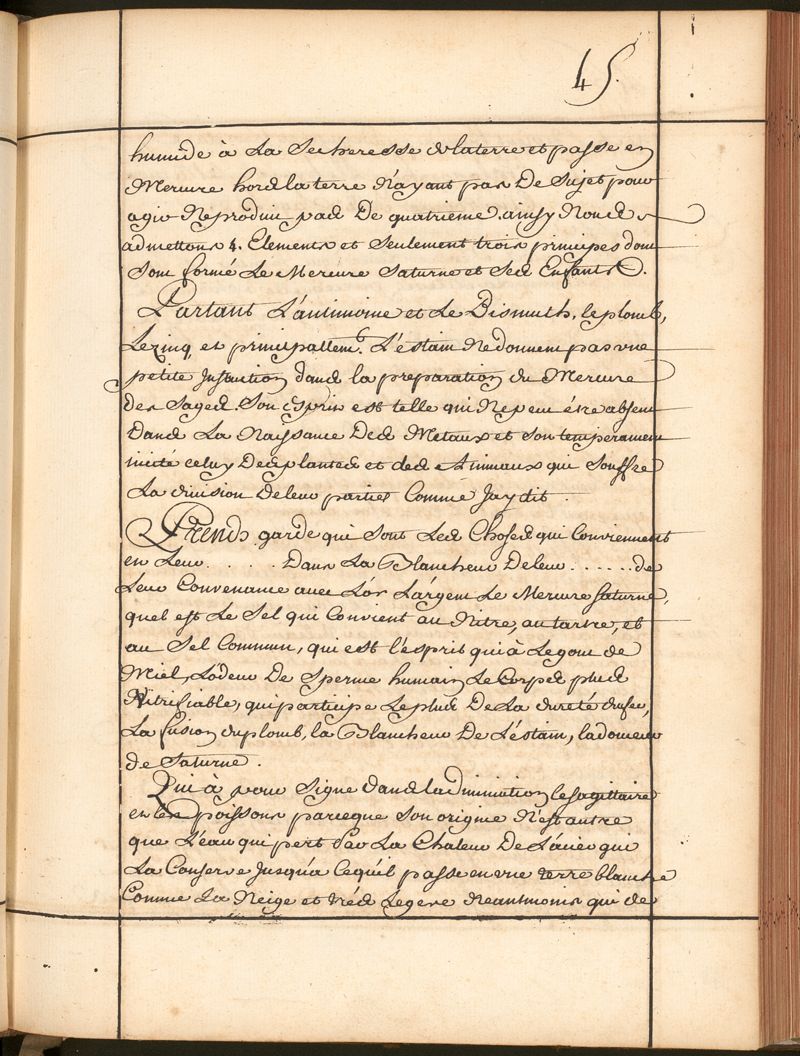 45.
humide à La Secheresse de la terre et passe en
Mercure hors la terre N'ayant pas De Sujet pour
agir Ne produit pas De quatrieme. ainsy Nous
admettons 4. Elements et Seulement trois principes dont
Sont formé Le Mercure Saturne et Ses Enfants.
Partant L'antimoine et Le Bismuth, le plomb,
Le zinq, et principallemt. L'estain Ne donnent pas une
petite Instruction dans la preparation du Mercure
des Sages. Son Esprit est telle qui Ne peut être absent
Dans La Naissance Des Metaux et Son temperament
imite celuy Des plantes et des Animaux qui Souffre
La division De leur parties Comme J'ay dit.
Prends garde qui Sont Les Choses qui Conviennent
en Leur . . . . . Dans La Blancheur De leur . . . . . . de
Leur Convenance avec L'or L'argent Le Mercure Saturne,
quel est Le Sel qui Convient au Nitre, au tartre, et
au Sel Commun, qui est l'esprit qui à Le gout de
Miel, L'odeur De Sperme humain Le Corps plus
Vitrifiable, qui participe Le plus De La dureté du feu,
La fusion du plomb, la Blancheur De L'éstain, la douceur
de Saturne.
Qui à pour Signe dans la Diminution le Sagittaire
et les poissons parceque Son origine N'est autre
que L'eau qui pert Par La Chaleur De L'acier qui
La Conserve Jusqu'a Ce qu'il passe en une terre blanche
Comme La Neige et trés Legere Neantmoins qui de